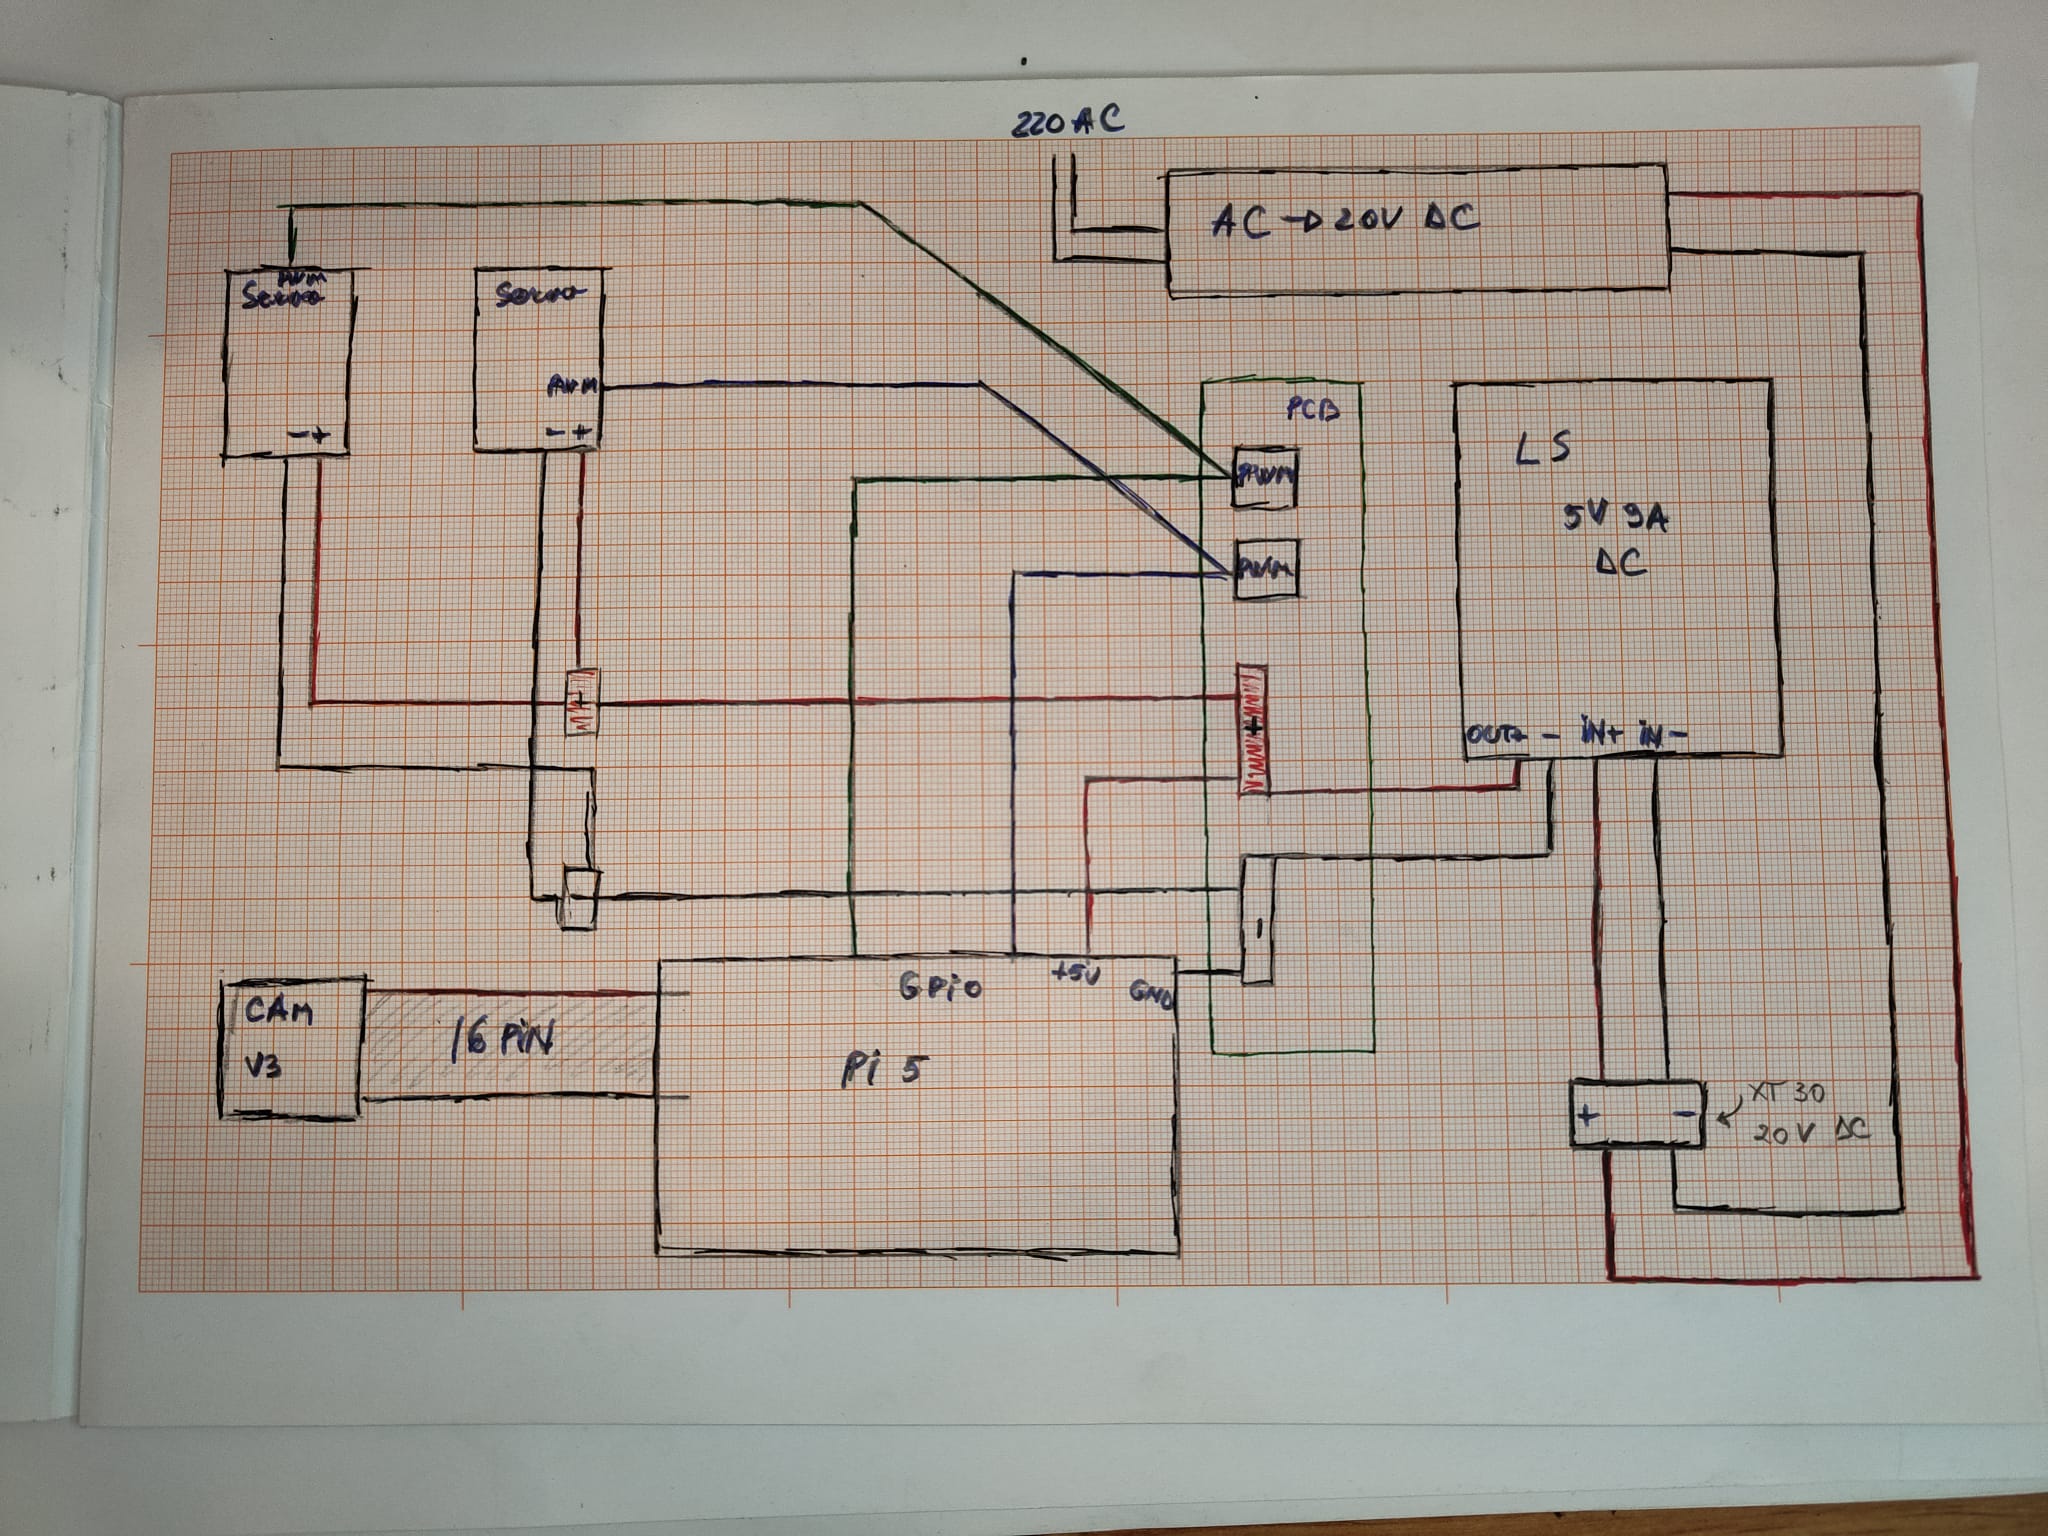 220 AC
AC → 20V DC
PWM
Servo
- +
Servo
PWM
- +
PCB
PWM
PWM
+
+
-
-
LS
5V 9A
DC
OUT+ - IN+ IN-
CAM
V3
16 PiN
GPiO
+5V
GND
Pi 5
+ -
XT 30
20V DC